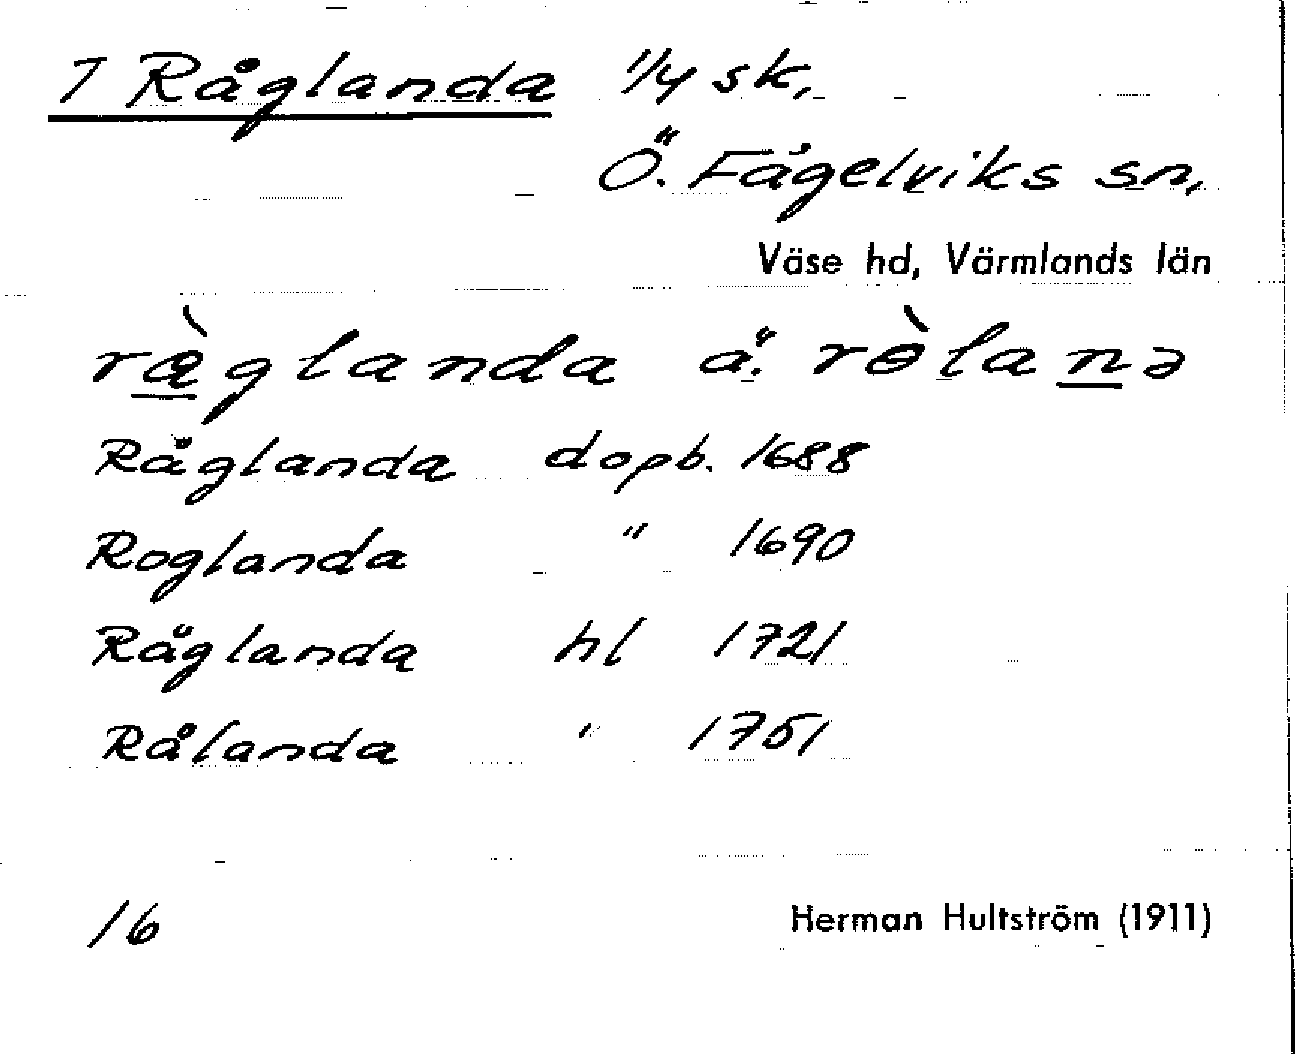 7 Råglanda 1/4 sk,
Ö. Fågelviks sn,
Väse hd, Värmlands län
ràglanda ä. ròlanə
Råglanda dopb. 1688
Roglanda " 1690
Råglanda hl 1721
Rålanda " 1751
16 Herman Hultström (1911)